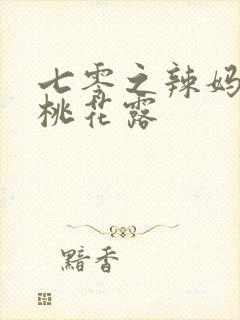 七零之辣妈
桃花露
黯香